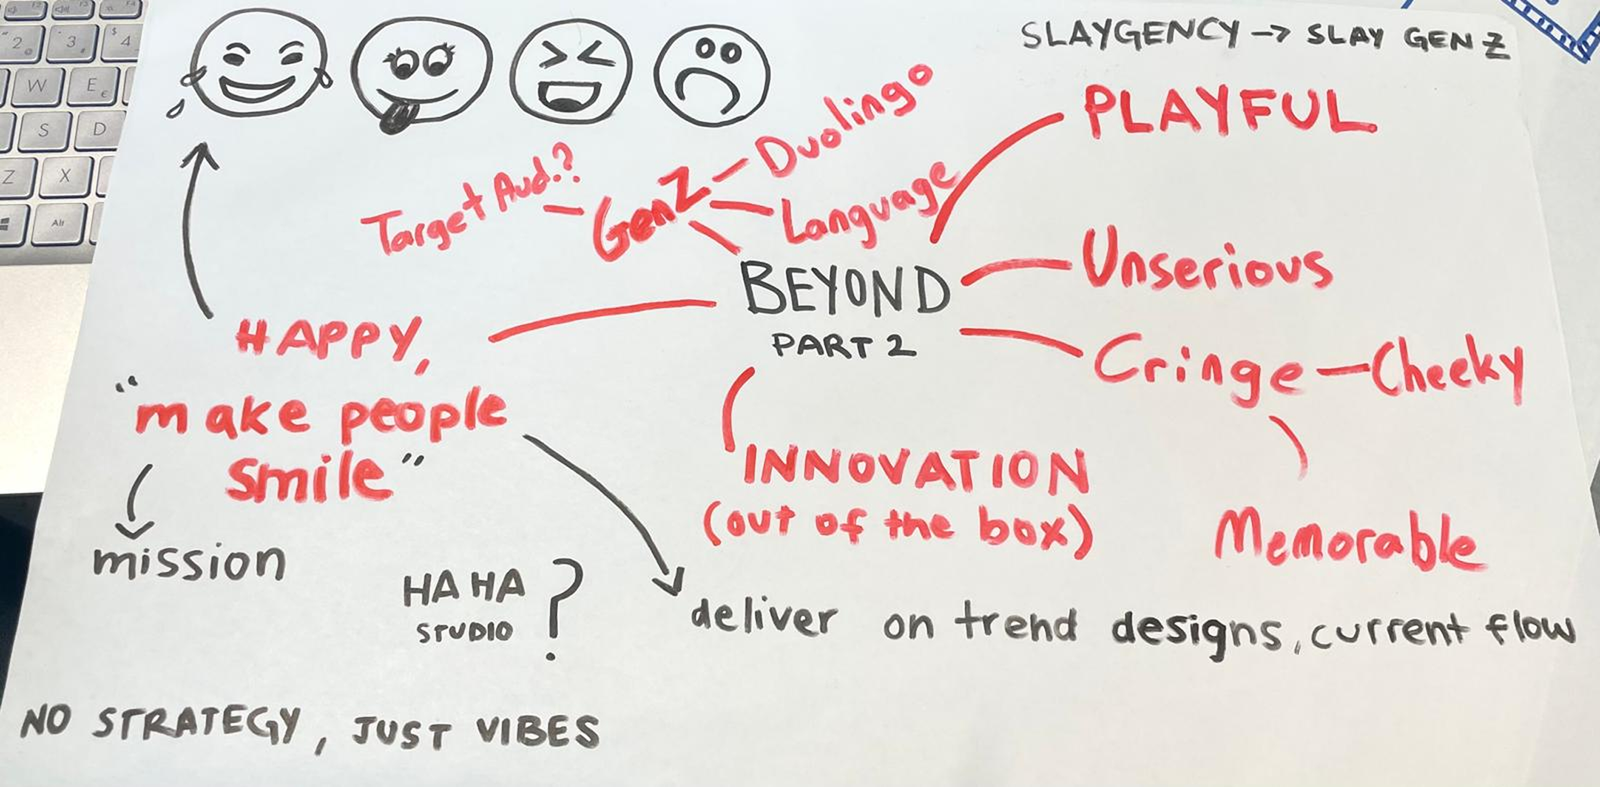 SLAYGENCY → SLAY GEN Z
PLAYFUL
Duolingo
Target Aud.?
GenZ
Language
Unserious
BEYOND
PART 2
HAPPY,
Cringe — Cheeky
"make people
smile"
INNOVATION
(out of the box)
Memorable
mission
HA HA
STUDIO
?
deliver on trend designs, current flow
NO STRATEGY, JUST VIBES
2
3
$
4
W
E
€
S
D
Z
X
Alt